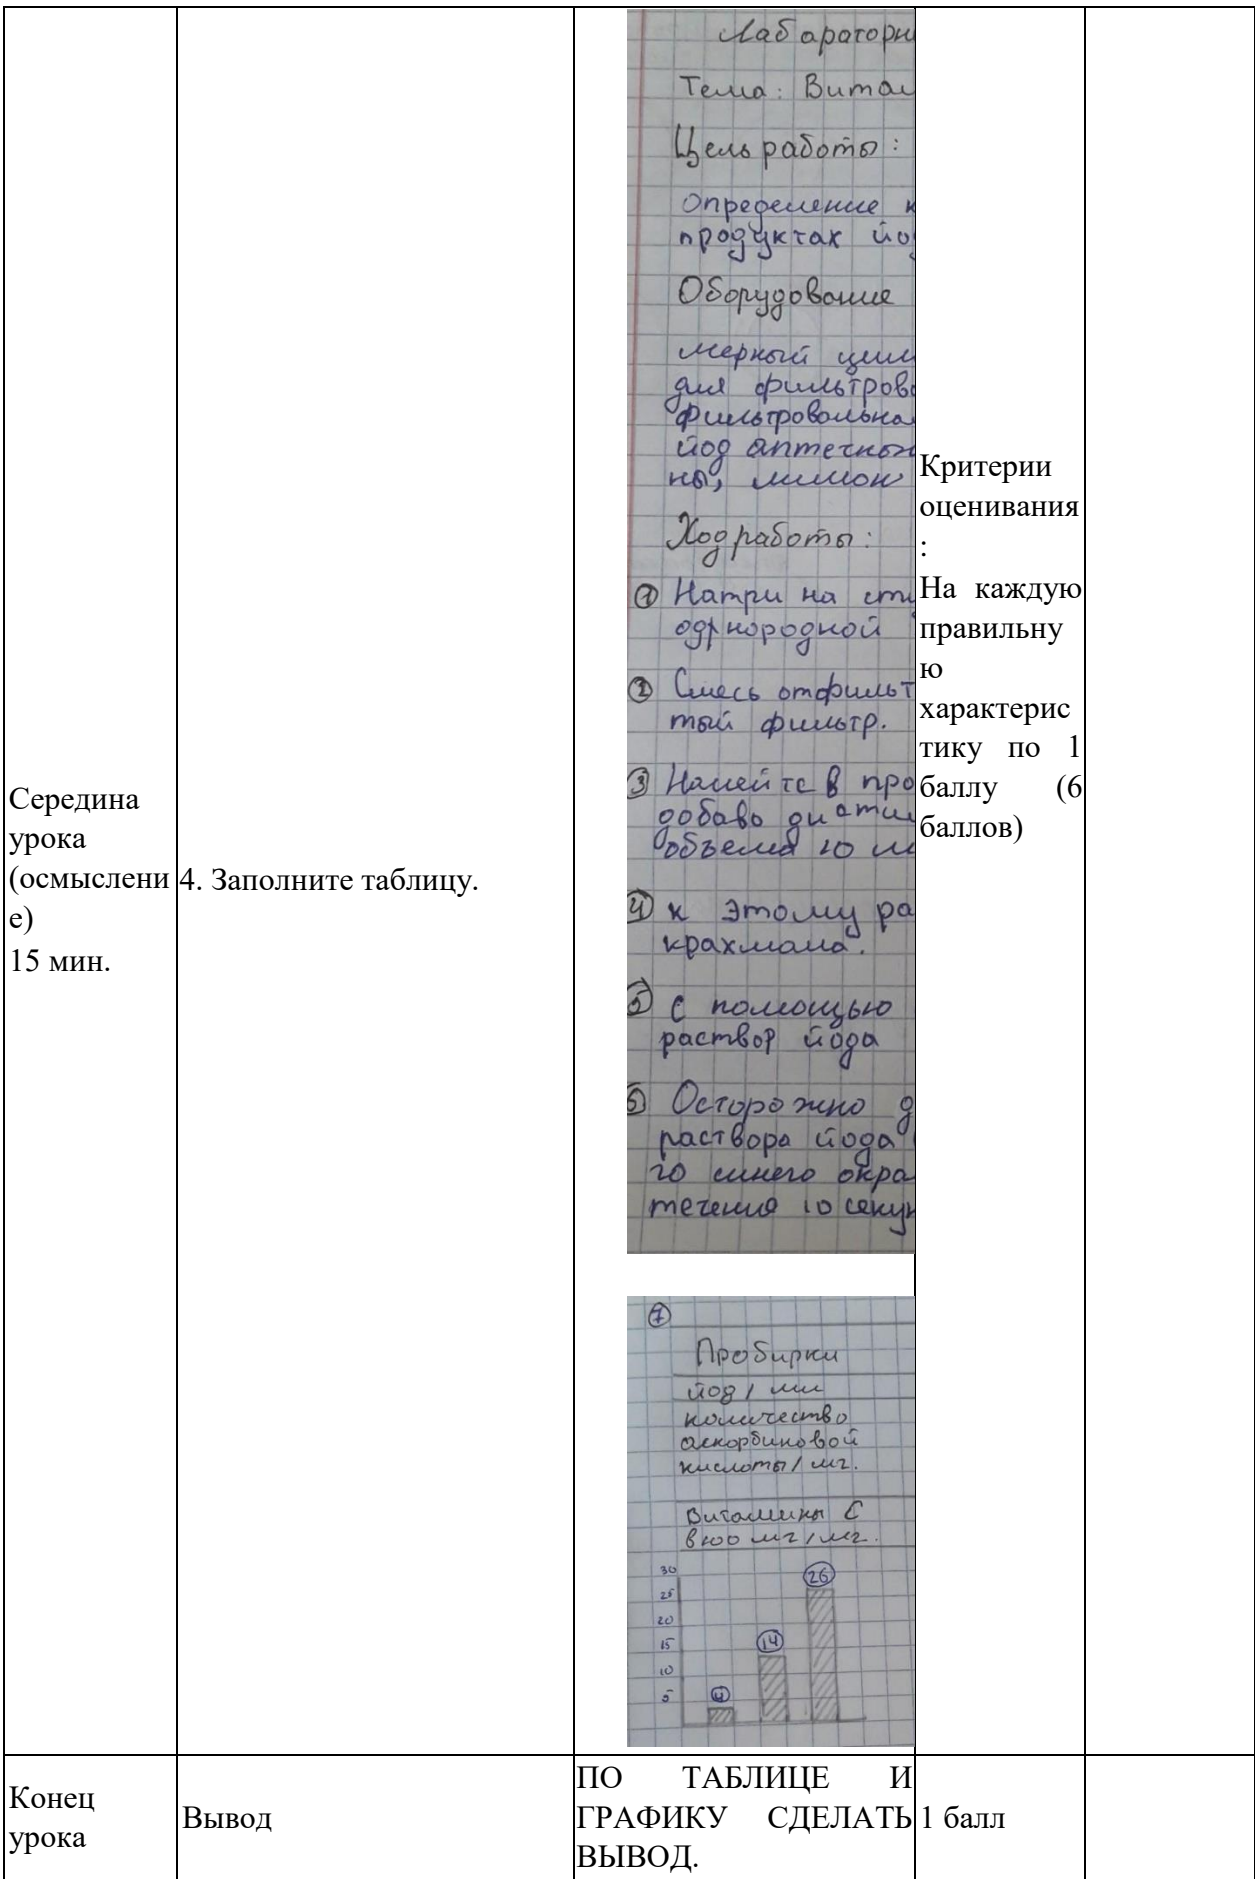 Середина
урока
(осмыслени
е)
15 мин.
4. Заполните таблицу.
Лабараторн
Тема: Витам
Цель работы:
Определение к
продуктах йо
Оборудование
мерный цили
для фильтрова
фильтровальная
йод аптечный
ны, лимон
Ход работы:
① Натри на
однородной
② Смесь отфильт
тый фильтр.
③ Налейте в про
добавь дистил
объема 10 м
④ к этому ра
крахмала.
⑤ С помощью
раствор йода
⑥ Осторожно д
раствора йода
го синего окра
течения 10 секун
⑦
Пробирки
йод / мл
количество
аскорбиновой
кислоты / мг.
Витамины С
в 100 мг / мг.
30
25
20
15
10
5
4
14
26
Критерии
оценивания
:
На каждую
правильну
ю
характерис
тику по 1
баллу (6
баллов)
Конец
урока
Вывод
ПО ТАБЛИЦЕ И
ГРАФИКУ СДЕЛАТЬ
ВЫВОД.
1 балл